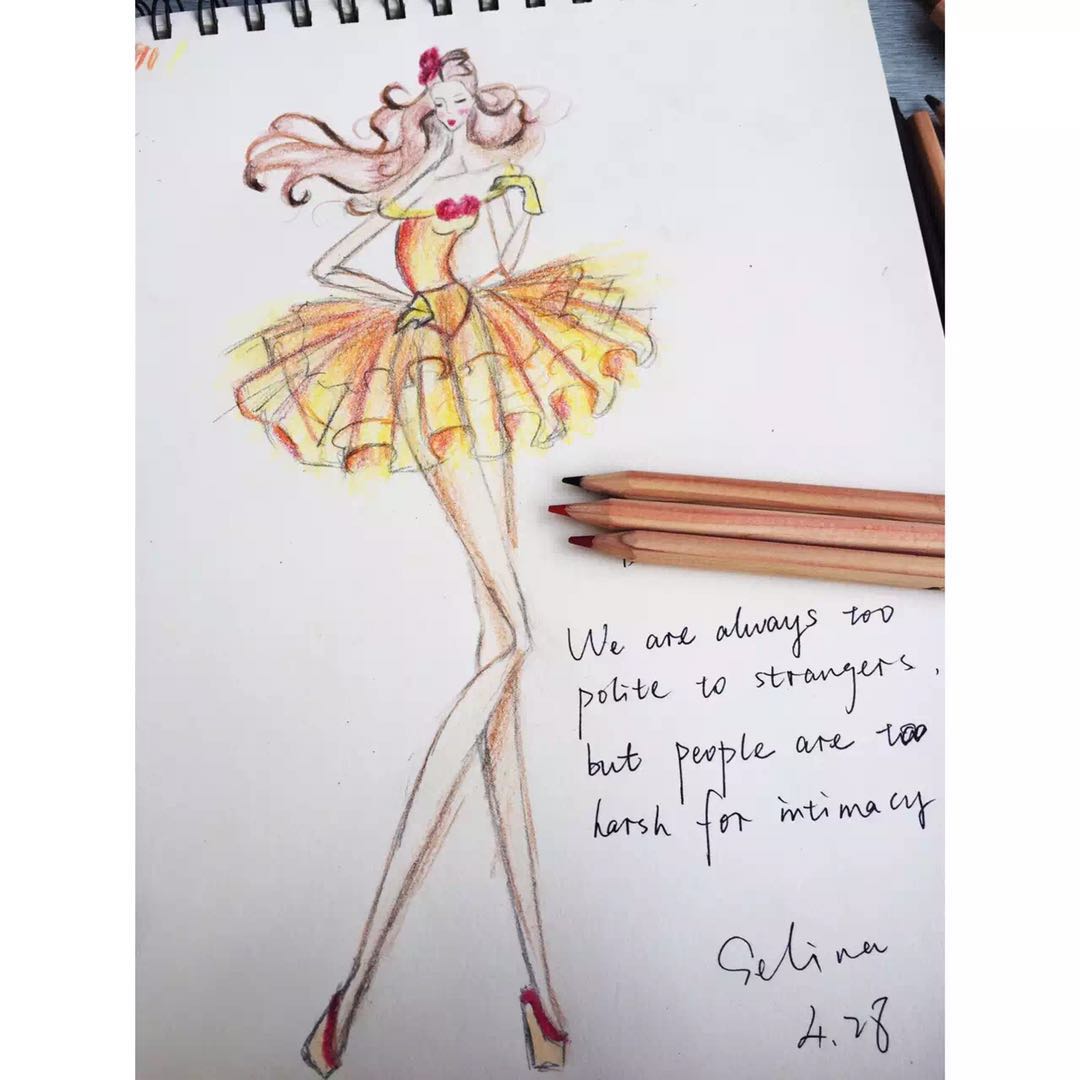 We are always too
polite to strangers,
but people are too
harsh for intimacy
Selina
4.28